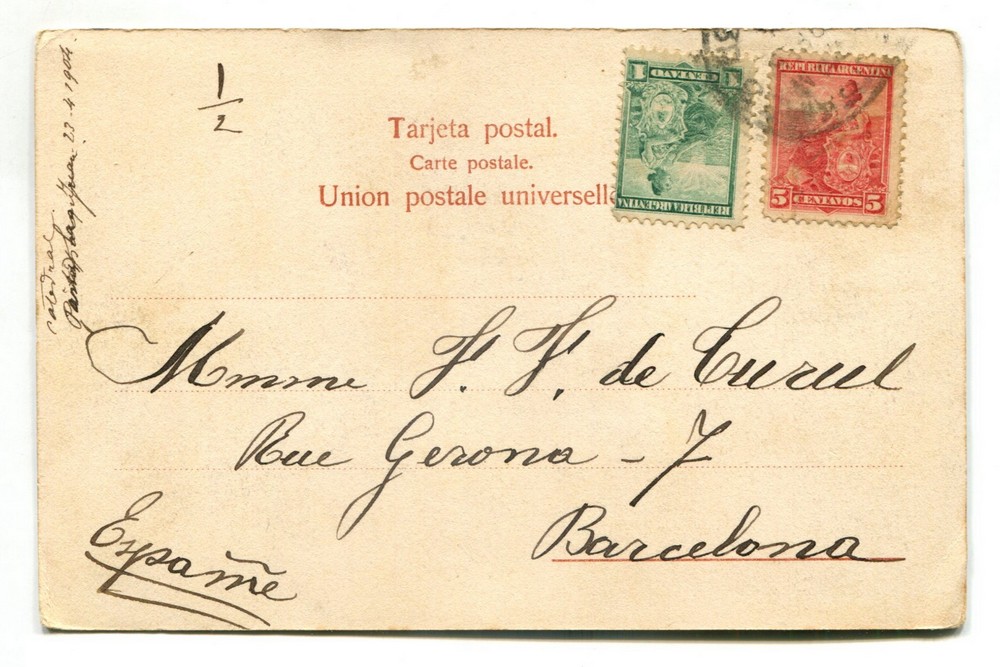 1
2
Tarjeta postal.
Carte postale.
Union postale universelle
1 CENTAVO 1
REPUBLICA ARGENTINA
REPUBLICA ARGENTINA
5 CENTAVOS 5
Catedral
23-4 1904.
Mmme F. F. de Turull
Rue Gerona - 7
Barcelona
Espagne